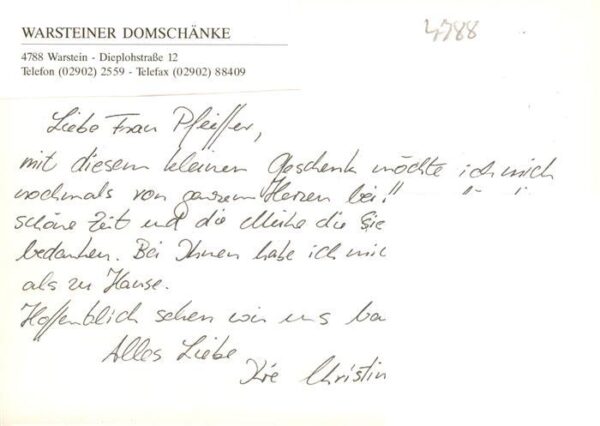 WARSTEINER DOMSCHÄNKE
4788
4788 Warstein - Dieplohstraße 12
Telefon (02902) 2559 - Telefax (02902) 88409
Liebe Frau Pfeiffer,
mit diesem kleinen Geschenk möchte ich mich
nochmals von ganzem Herzen bei
schöne Zeit und die Mühe die Sie
bedanken. Bei Ihnen habe ich mic
als zu Hause.
Hoffentlich sehen wir uns ba
Alles Liebe
Ihre Christin